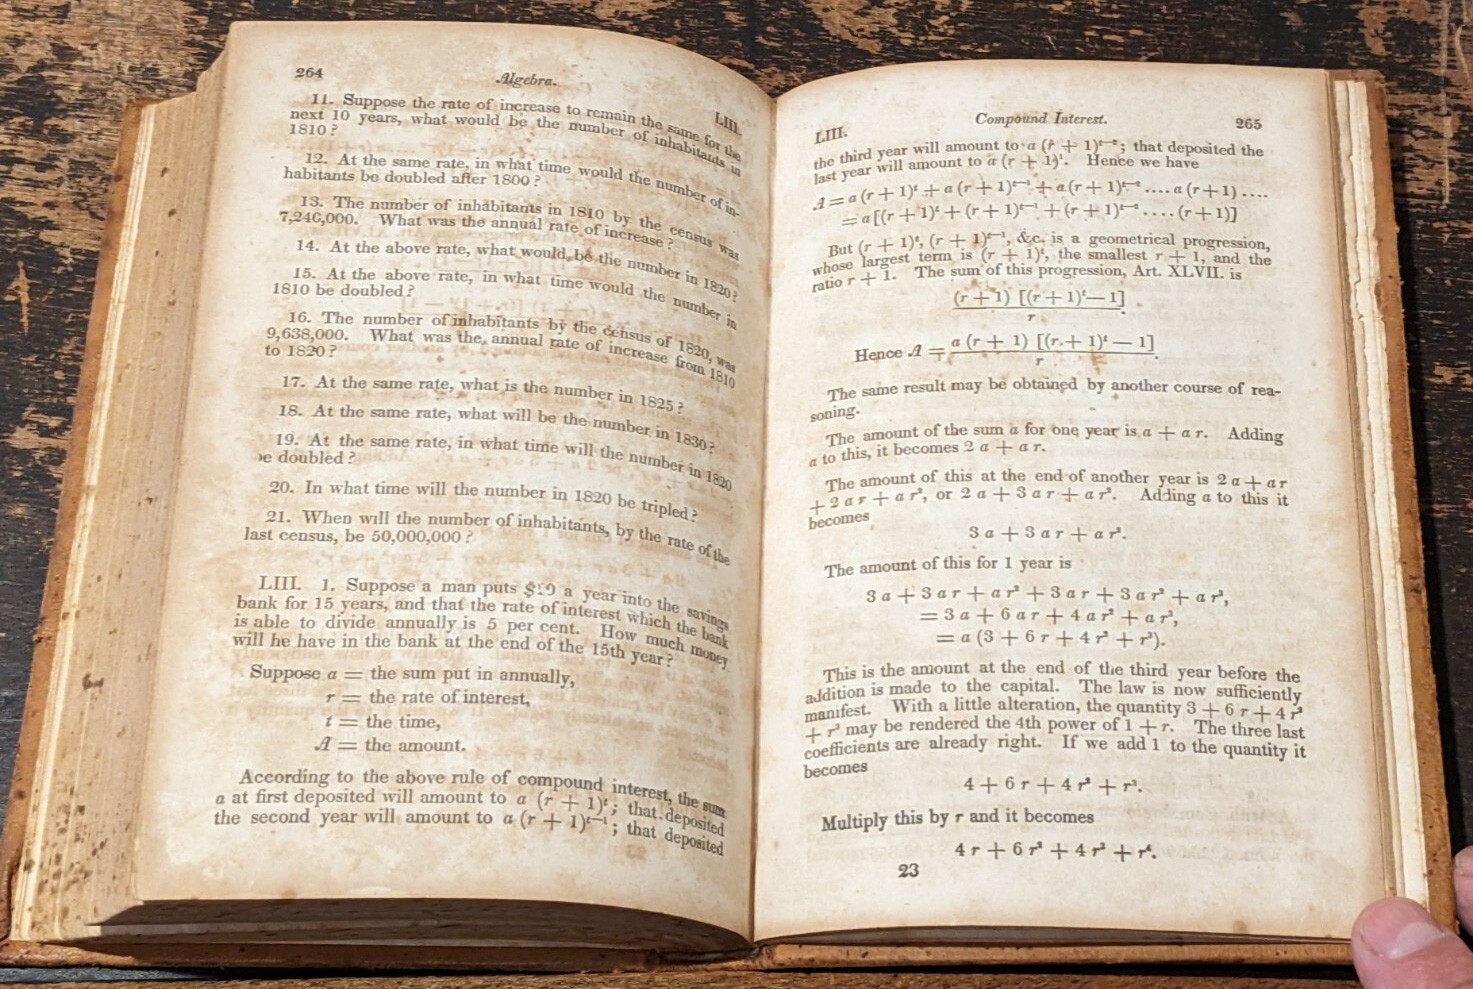 264
Algebra.
LIII.
11. Suppose the rate of increase to remain the same for the
next 10 years, what would be the number of inhabitants in
1810?
12. At the same rate, in what time would the number of in-
habitants be doubled after 1800?
13. The number of inhabitants in 1810 by the census was
7,240,000. What was the annual rate of increase?
14. At the above rate, what would be the number in 1820?
15. At the above rate, in what time would the number in
1810 be doubled?
16. The number of inhabitants by the census of 1820, was
9,638,000. What was the annual rate of increase from 1810
to 1820?
17. At the same rate, what is the number in 1825?
18. At the same rate, what will be the number in 1830?
19. At the same rate, in what time will the number in 1820
be doubled?
20. In what time will the number in 1820 be tripled?
21. When will the number of inhabitants, by the rate of the
last census, be 50,000,000?
LIII. 1. Suppose a man puts $10 a year into the savings
bank for 15 years, and that the rate of interest which the bank
is able to divide annually is 5 per cent. How much money
will he have in the bank at the end of the 15th year?
Suppose a = the sum put in annually,
r = the rate of interest,
t = the time,
A = the amount.
According to the above rule of compound interest, the sum
a at first deposited will amount to a (r + 1)ᵗ; that deposited
the second year will amount to a (r + 1)ᵗ⁻¹; that deposited
LIII.
Compound Interest.
265
the third year will amount to a (r + 1)ᵗ⁻²; that deposited the
last year will amount to a (r + 1)¹. Hence we have
A = a (r + 1)ᵗ + a (r + 1)ᵗ⁻¹ + a (r + 1)ᵗ⁻² .... a (r + 1) ....
= a [(r + 1)ᵗ + (r + 1)ᵗ⁻¹ + (r + 1)ᵗ⁻² .... (r + 1)]
But (r + 1)ᵗ, (r + 1)ᵗ⁻¹, &c. is a geometrical progression,
whose largest term is (r + 1)ᵗ, the smallest r + 1, and the
ratio r + 1. The sum of this progression, Art. XLVII. is
(r + 1) [(r + 1)ᵗ — 1]
r.
Hence A = a (r + 1) [(r + 1)ᵗ — 1]
r.
The same result may be obtained by another course of rea-
soning.
The amount of the sum a for one year is a + a r. Adding
a to this, it becomes 2 a + a r.
The amount of this at the end of another year is 2 a + a r
+ 2 a r + a r², or 2 a + 3 a r + a r². Adding a to this it
becomes
3 a + 3 a r + a r².
The amount of this for 1 year is
3 a + 3 a r + a r² + 3 a r + 3 a r² + a r³,
= 3 a + 6 a r + 4 a r² + a r³,
= a (3 + 6 r + 4 r² + r³).
This is the amount at the end of the third year before the
addition is made to the capital. The law is now sufficiently
manifest. With a little alteration, the quantity 3 + 6 r + 4 r²
+ r³ may be rendered the 4th power of 1 + r. The three last
coefficients are already right. If we add 1 to the quantity it
becomes
4 + 6 r + 4 r² + r³.
Multiply this by r and it becomes
4 r + 6 r² + 4 r³ + r⁴.
23